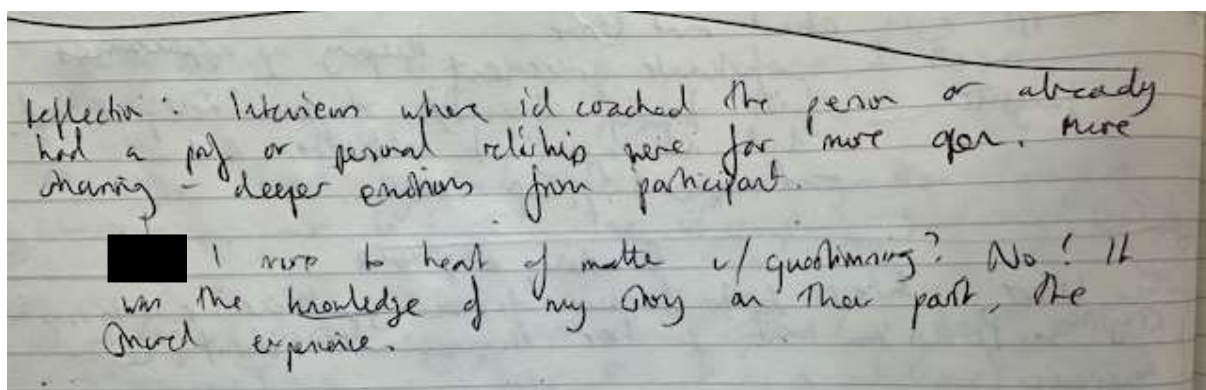 Reflection: Interviews where i'd coached the person or already
had a prof or personal rel'ship were far more open. More
sharing - deeper emotions from participant.
I more to heart of matter w/ questioning? No! It
was the knowledge of my story on their part, the
shared experience.